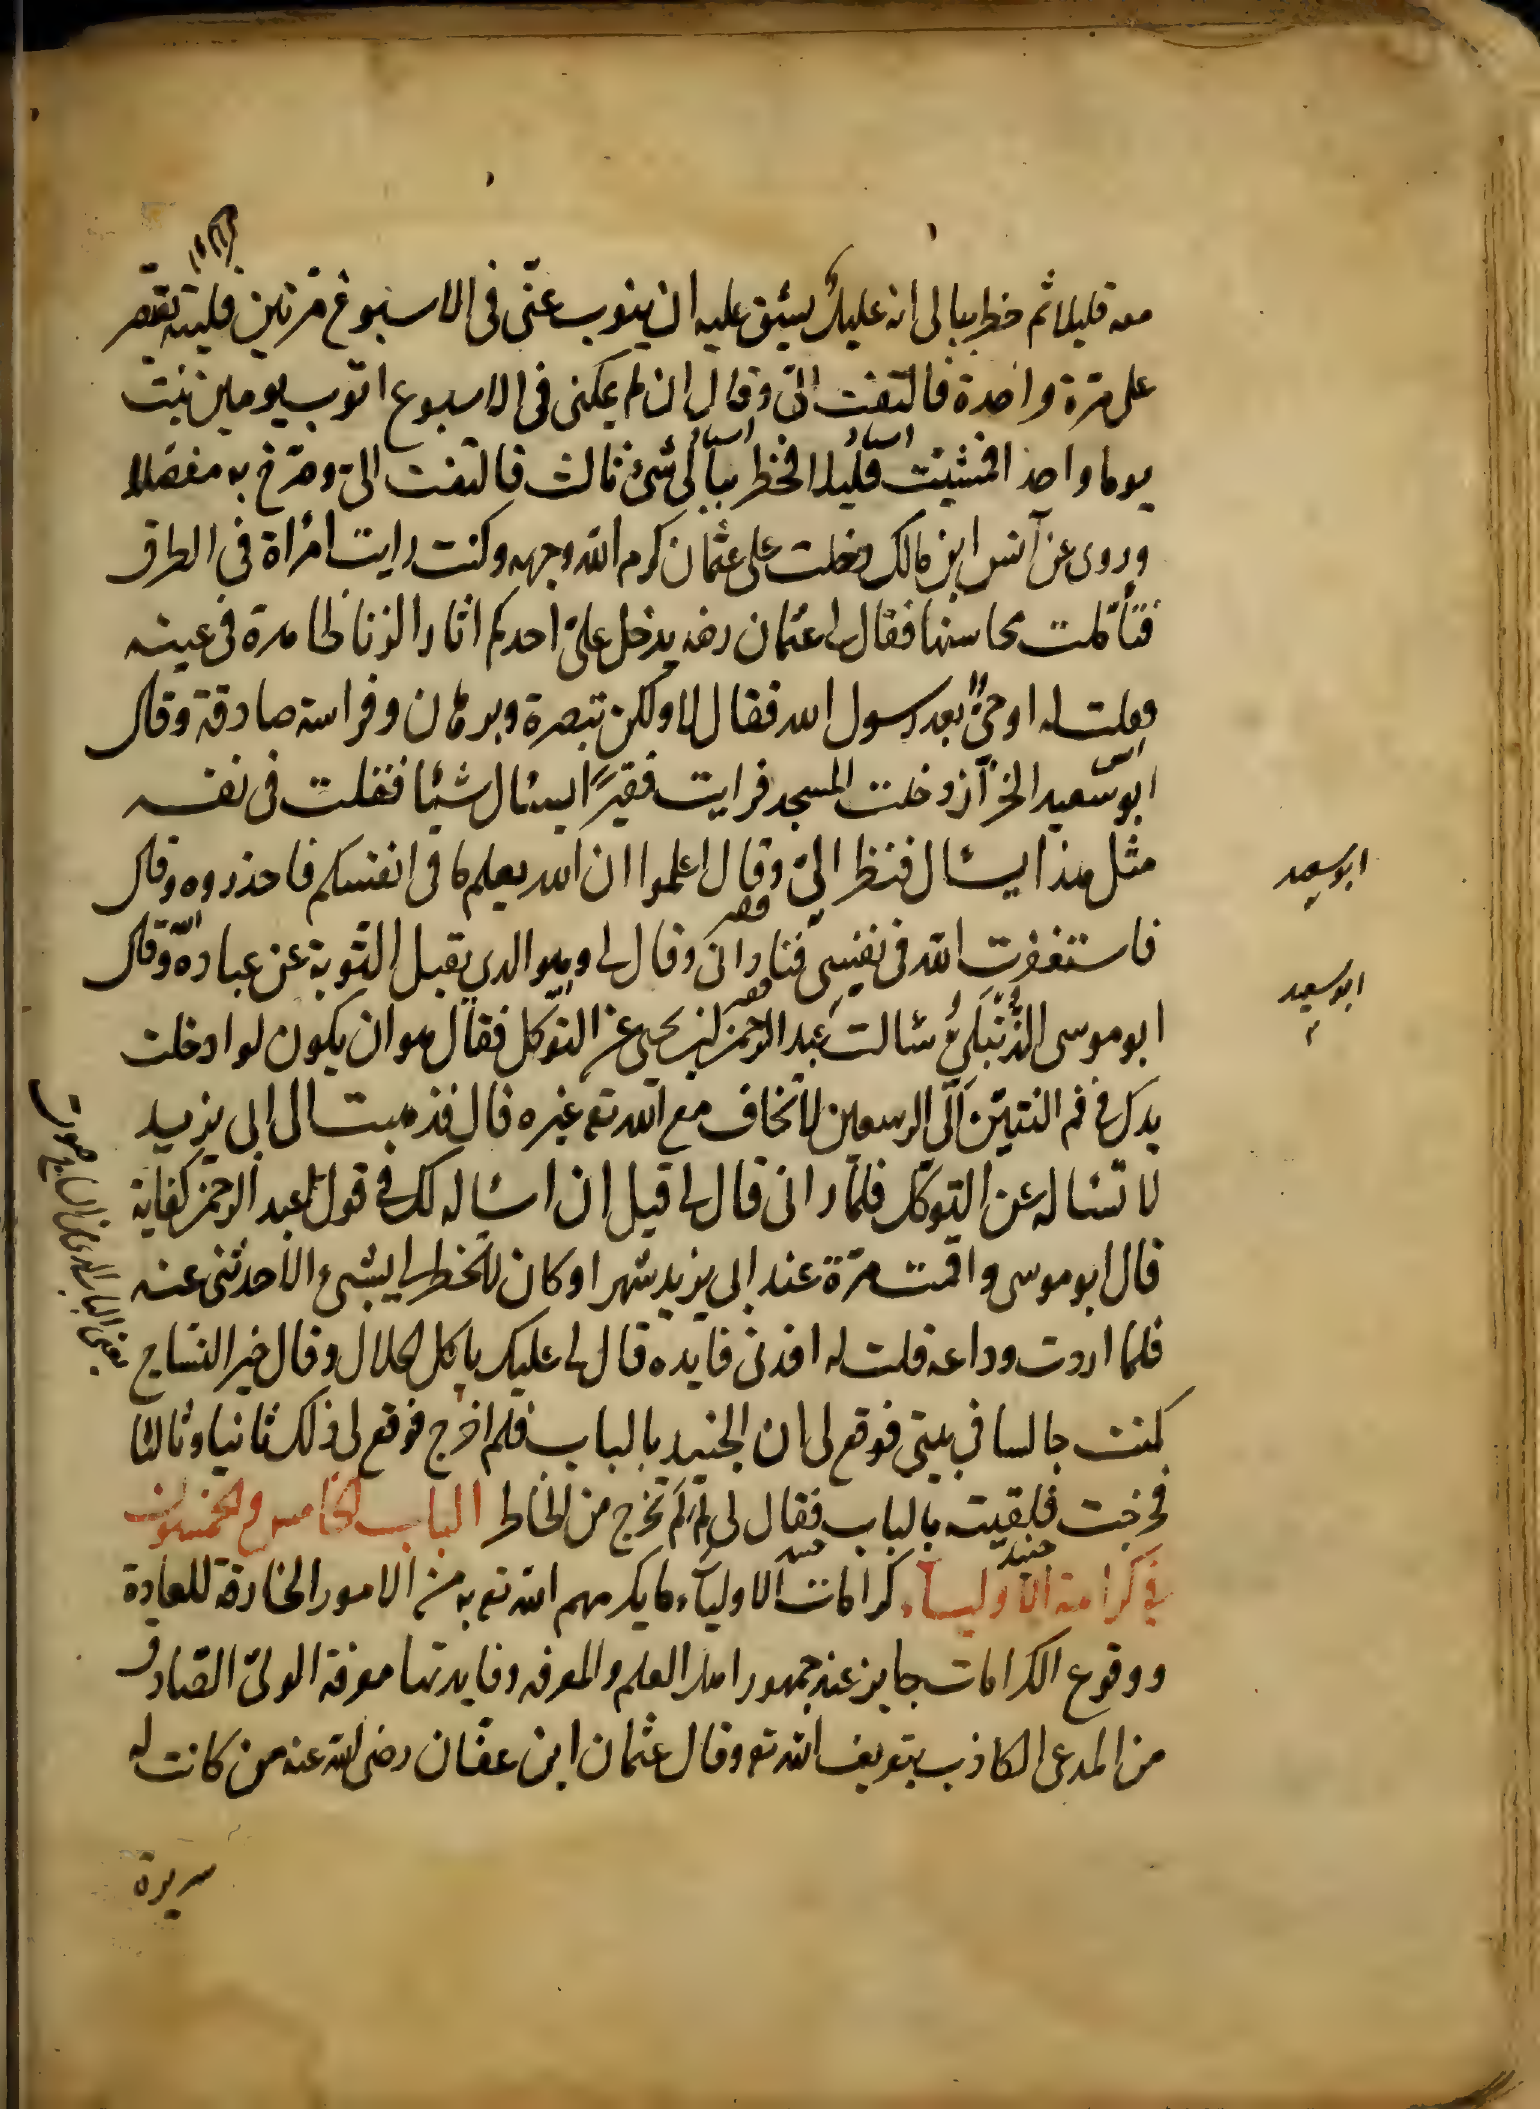 معه قليلا ثم خطر ببالى انه عليل يشق عليه ان ينوب عنّى فى الاسبوع مرّتين فليته يقتصر
على مرّة واحدة فالتفت الىّ وقال ان لم يمكنى فى الاسبوع اتوب يومين تبت
يوما واحدا فمشيت قليلا فخطر ببالى شئ ثالث فالتفت الىّ وصرّخ به مفصّلا
وروى عن انس ابن مالك دخلت على عثمان كرم الله وجهه وكنت رايت امراة فى الطرق
فتأمّلت محاسنها فقال لى عثمان رضه يدخل علىّ احدكم اثار الزنا ظاهرة فى عينه
فقلت له اوحىٌ بعد رسول الله فقال لا ولكن تبصرة وبرهان وفراسة صادقة وقال
ابو سعيد الخرّاز دخلت المسجد فرايت فقيرًا يسئال شيئا فقلت فى نفسه
مثل هذا يسئال فنظر الىّ وقال اعلموا ان الله يعلم ما فى انفسكم فاحذروه وقال
فاستغفرت الله فى نفسى فنادانى وقال لى وهو الذى يقبل التّوبة عن عباده وقال
ابو موسى الدُّنْبَلِىُّ سئالت عبد الرحمن بن يحيى عن التوكّل فقال هو ان يكون لو ادخلت
يدك فى فم التنيّن الى الرسغين لا تخاف مع الله تع غيره قال فذهبت الى ابى يزيد
لا تسئاله عن التوكّل فلمّا رانى قال لى قبل ان اسئاله لك فى قول عبد الرحمن كفاية
قال ابو موسى واقمت مرّة عند ابى يزيد شهرا وكان لا يخطر لى بشئ الا حدثنى عنه
فلما اردت وداعه قلت له افدنى فايدة قال لى عليك باكل الحلال وقال خير النسّاج
كنت جالسا فى بيتى فوقع لى ان الجنيد بالباب فلم اخرج فوقع لى ذلك ثانيا وثالثا
فخرجت فلقيته بالباب فقال لى لِمَ لَمْ تخرج من الخاطر الباب الخامس والخمسون
فى كرامة الاولياء كرامات الاولياء ما يكرمهم الله تع به من الامور الخارقة للعادة
ووقوع الكرامات جايز عند جمهور اهل العلم والمعرفه وفايدتها معرفة الولىّ الصّادق
من المدعى الكاذب بتعريف الله تع وقال عثمان ابن عفّان رضى الله عنه من كانت له
سريرة
ابو سعيد
ابو سعيد